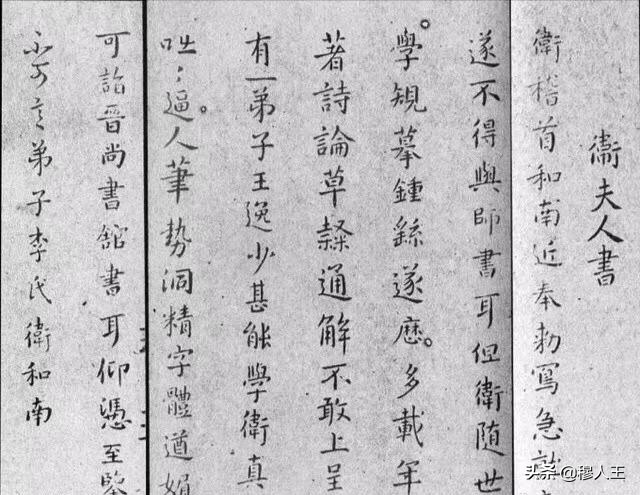 衞夫人書
衛稽首和南近奉勅寫急就
遂不得與師書耳但衛隨世
學規摹鍾繇遂歷。多載年
著詩論草隸通解不敢上呈
有一弟子王逸少甚能學衛真
咄〻逼。人筆勢洞精字體遒媚
可詣晉尚書舘書耳仰憑至鑒
不可言弟子李氏衛和南
头条 @穆人王